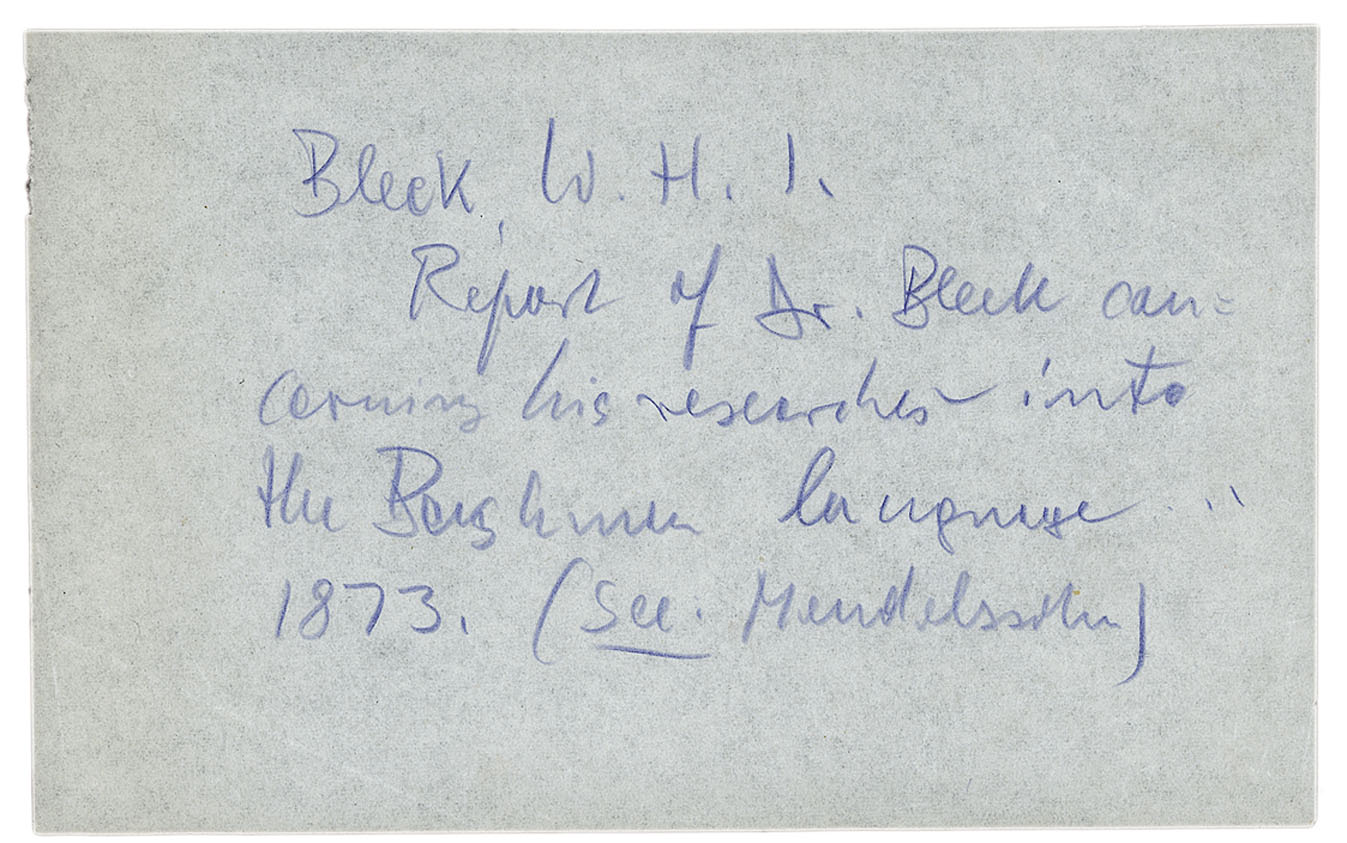 Bleek, W. H. I.
Report of Dr. Bleek con=
cerning his researches into
the Bushman language ...
1873. (See. Mendelssohn)